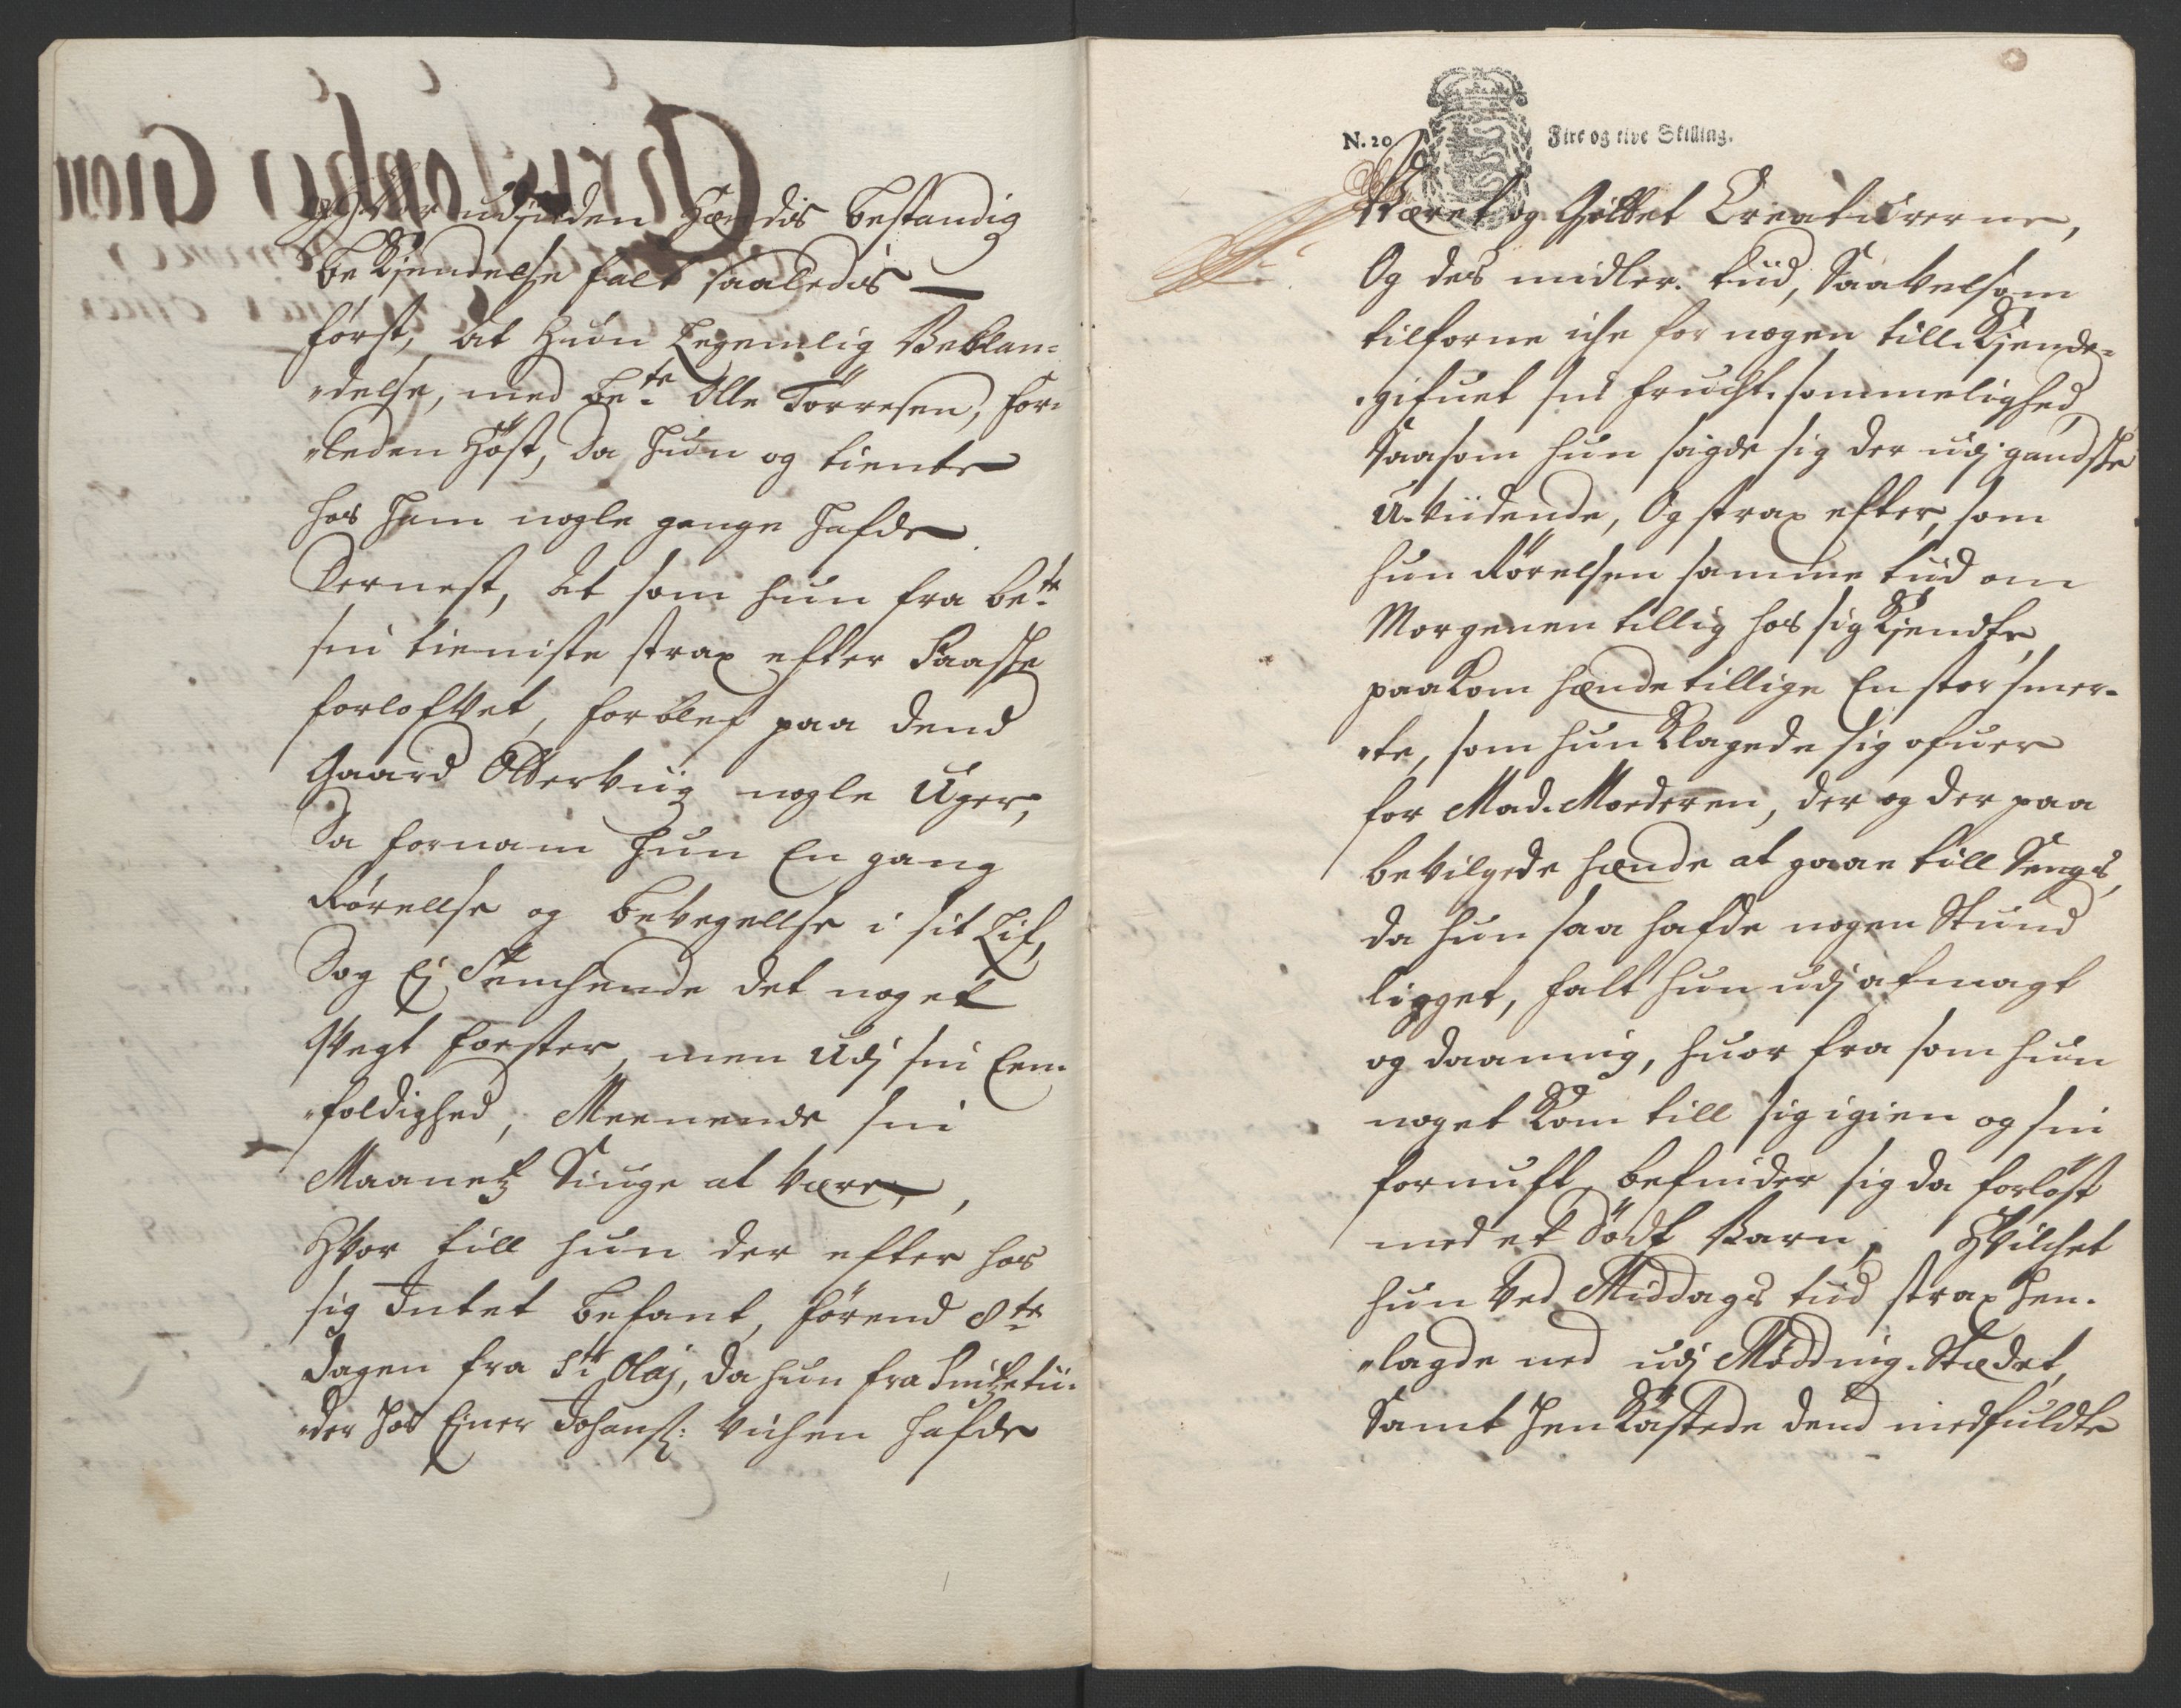 Hvor udj siden Hændis bestandig
beKiendelse falt saaledis
først, At Huun Legemlig Beblan-
delse, med be.te Olle Törresen, for-
leden Høst, Da Huun og tiente
hos Ham nogle gange Hafde
Dernest, At som hun fra be.te
sin tieniste strax efter Paasche
forloftvet, forblef paa dend
Gaard Otterviig nogle Uger,
Da fornam Hun En gang
Rørellse og bevegellse i sit Lif,
Dog Ej Tenchende det noget
Vegt foester, men Udj sin Een-
foldighed, Meenende sin
Maanetz Siuge at være,
Hvor till hun der efter hos
sig Intet befant, førend 8te
dagen fra St: Olaj, da hun fra
der hos Einer Johanss: Vichen hafde
N. 20
Fire og tive Skilling.
Været og Giettet Creaturerne,
Og des midler. tiid, Saavelsom
tilforne iche for nogen till Kiende-
gifuet sin fruchtsommelighed,
Saasom hun sagde sig der udj gandsche
U-viidende, Og strax efter, som
hun Rørelsen samme tiid om
Morgenen tillig hos sig Kiendte,
paaKom hænde tillige En stor smer-
te, som hun Klagede sig ofuer
for Mad-Moederen, der og der paa
bevilgede hænde at gaae till Sengs,
da hun saa hafde nogen Stund
ligget, falt hun udj afmagt
og daaning, huor fra som hun
noget Kom till sig igien og sin
fornuft, befinder sig da forløst
med et Dødt Barn, Hvilchet
hun ved Middags tiid strax hen-
lagde ned udj Mødding-Stædet,
Samt hen Kastede dend medfuldte